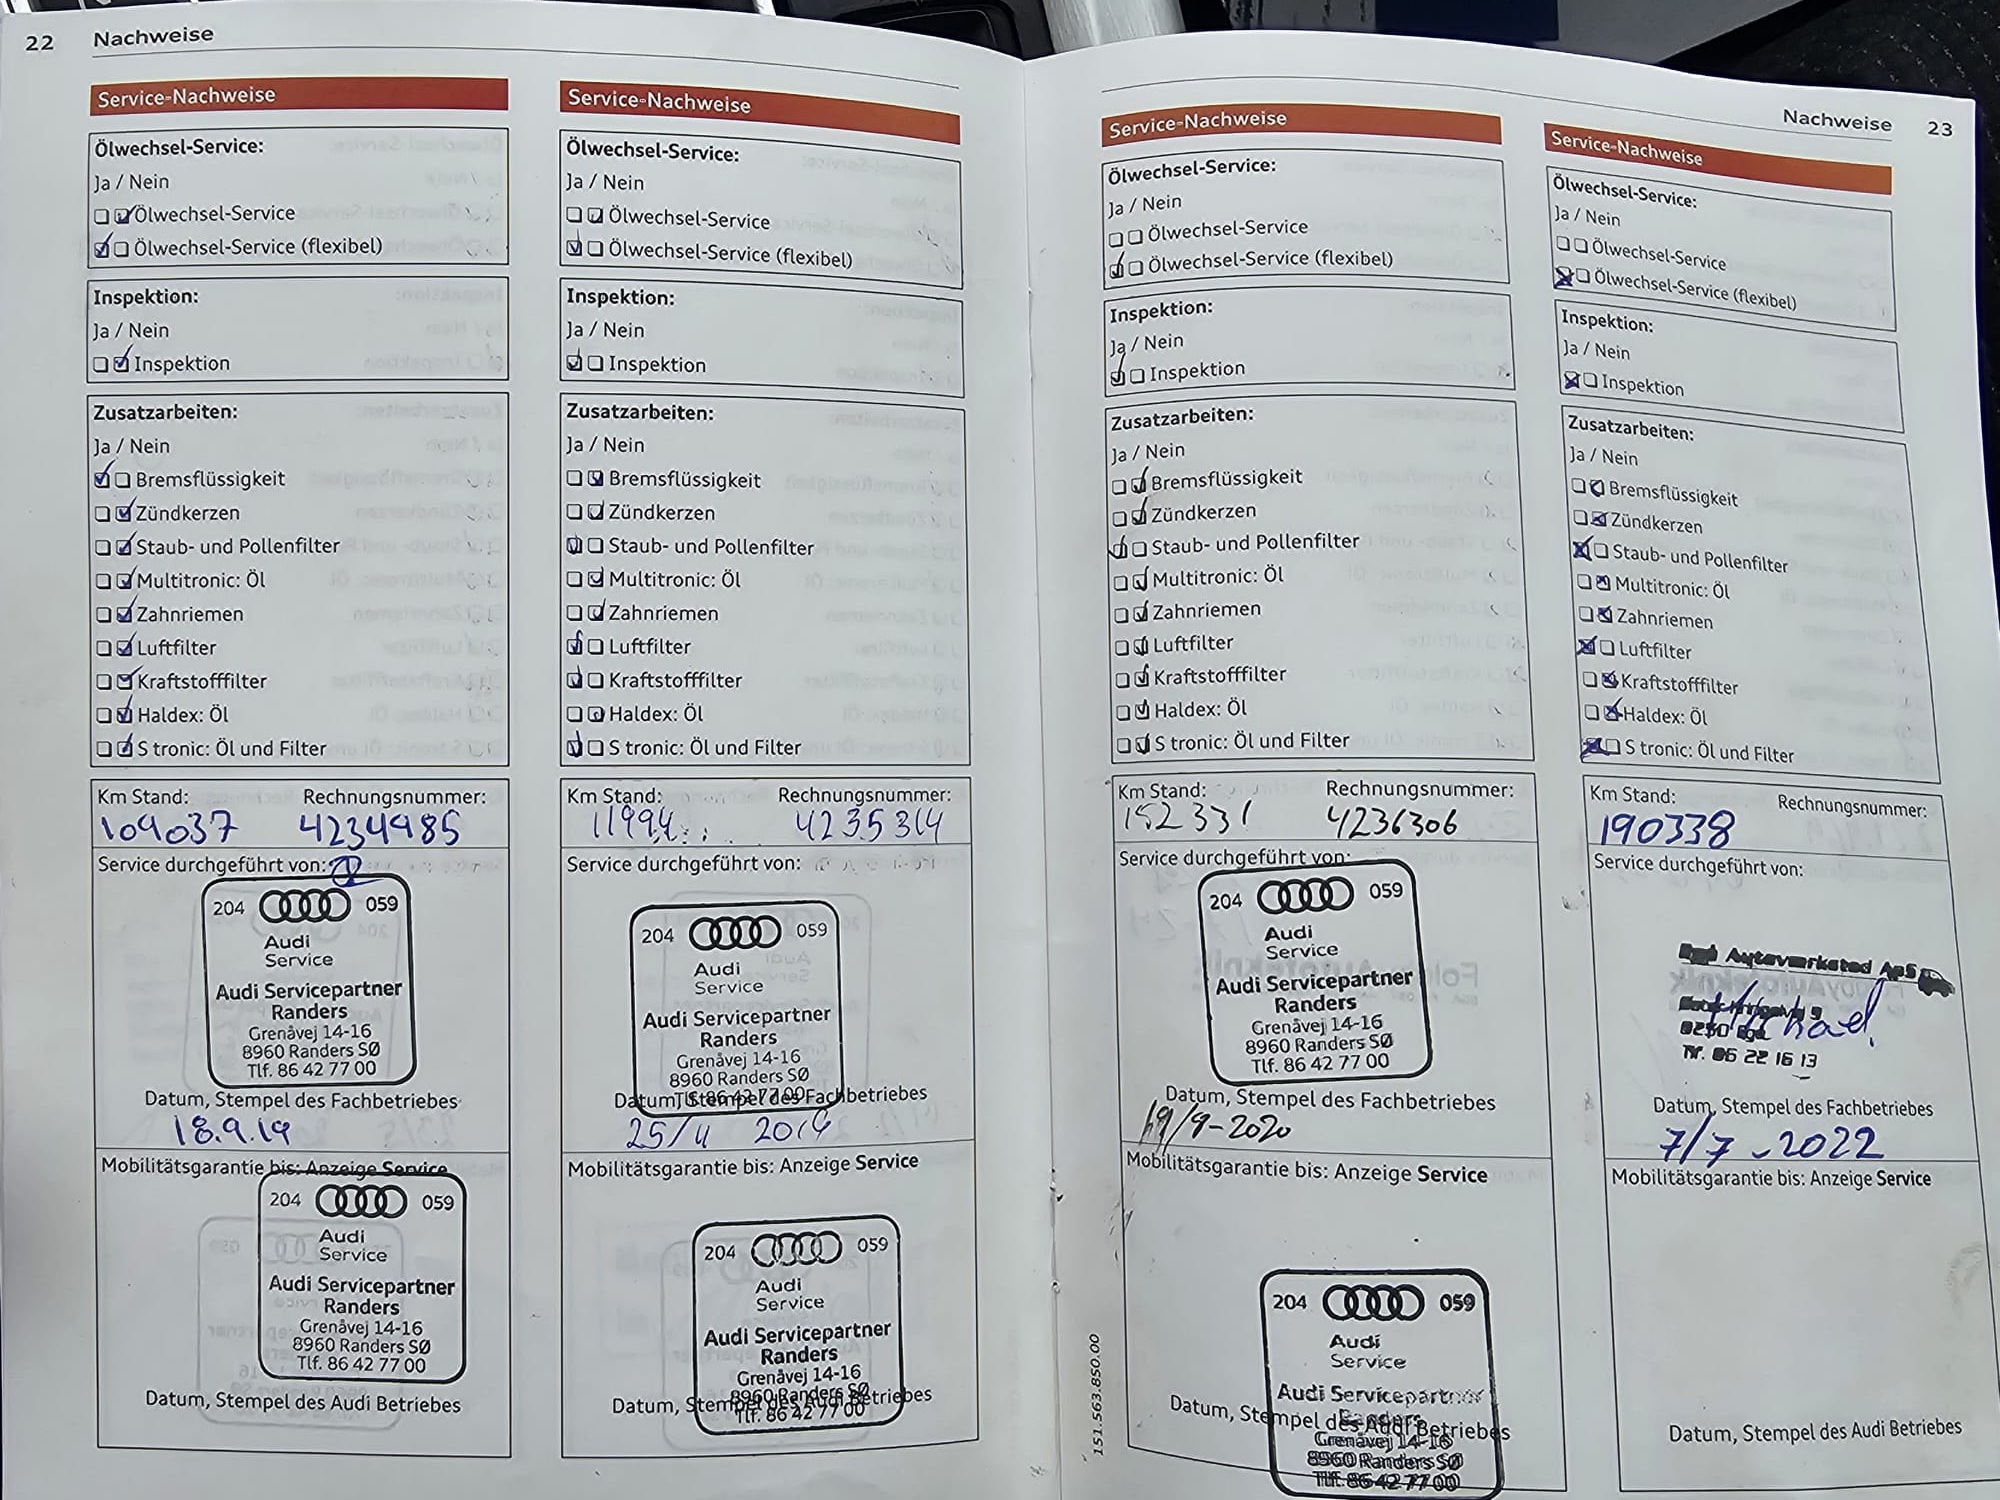 22 Nachweise
Service-Nachweise
Ölwechsel-Service:
Ja / Nein
Ölwechsel-Service
Ölwechsel-Service (flexibel)
Inspektion:
Ja / Nein
Inspektion
Zusatzarbeiten:
Ja / Nein
Bremsflüssigkeit
Zündkerzen
Staub- und Pollenfilter
Multitronic: Öl
Zahnriemen
Luftfilter
Kraftstofffilter
Haldex: Öl
S tronic: Öl und Filter
Km Stand: Rechnungsnummer:
109037 4234985
Service durchgeführt von:
204 059
Audi
Service
Audi Servicepartner
Randers
Grenåvej 14-16
8960 Randers SØ
Tlf. 86 42 77 00
Datum, Stempel des Fachbetriebes
18.9.19
Mobilitätsgarantie bis: Anzeige Service
204 059
Audi
Service
Audi Servicepartner
Randers
Grenåvej 14-16
8960 Randers SØ
Tlf. 86 42 77 00
Datum, Stempel des Audi Betriebes
Service-Nachweise
Ölwechsel-Service:
Ja / Nein
Ölwechsel-Service
Ölwechsel-Service (flexibel)
Inspektion:
Ja / Nein
Inspektion
Zusatzarbeiten:
Ja / Nein
Bremsflüssigkeit
Zündkerzen
Staub- und Pollenfilter
Multitronic: Öl
Zahnriemen
Luftfilter
Kraftstofffilter
Haldex: Öl
S tronic: Öl und Filter
Km Stand: Rechnungsnummer:
11994 4235314
Service durchgeführt von:
204 059
Audi
Service
Audi Servicepartner
Randers
Grenåvej 14-16
8960 Randers SØ
Tlf. 86 42 77 00
Datum, Stempel des Fachbetriebes
25/11 2019
Mobilitätsgarantie bis: Anzeige Service
204 059
Audi
Service
Audi Servicepartner
Randers
Grenåvej 14-16
8960 Randers SØ
Tlf. 86 42 77 00
Datum, Stempel des Audi Betriebes
Nachweise 23
Service-Nachweise
Ölwechsel-Service:
Ja / Nein
Ölwechsel-Service
Ölwechsel-Service (flexibel)
Inspektion:
Ja / Nein
Inspektion
Zusatzarbeiten:
Ja / Nein
Bremsflüssigkeit
Zündkerzen
Staub- und Pollenfilter
Multitronic: Öl
Zahnriemen
Luftfilter
Kraftstofffilter
Haldex: Öl
S tronic: Öl und Filter
Km Stand: Rechnungsnummer:
152331 4236306
Service durchgeführt von:
204 059
Audi
Service
Audi Servicepartner
Randers
Grenåvej 14-16
8960 Randers SØ
Tlf. 86 42 77 00
Datum, Stempel des Fachbetriebes
19/9-2020
Mobilitätsgarantie bis: Anzeige Service
204 059
Audi
Service
Audi Servicepartner
Randers
Grenåvej 14-16
8960 Randers SØ
Tlf. 86 42 77 00
Datum, Stempel des Audi Betriebes
151.563.850.00
Service-Nachweise
Ölwechsel-Service:
Ja / Nein
Ölwechsel-Service
Ölwechsel-Service (flexibel)
Inspektion:
Ja / Nein
Inspektion
Zusatzarbeiten:
Ja / Nein
Bremsflüssigkeit
Zündkerzen
Staub- und Pollenfilter
Multitronic: Öl
Zahnriemen
Luftfilter
Kraftstofffilter
Haldex: Öl
S tronic: Öl und Filter
Km Stand: Rechnungsnummer:
190338
Service durchgeführt von:
Autoværksted ApS
8250 Egå
Tlf. 86 22 16 13
Datum, Stempel des Fachbetriebes
7/7-2022
Mobilitätsgarantie bis: Anzeige Service
Datum, Stempel des Audi Betriebes